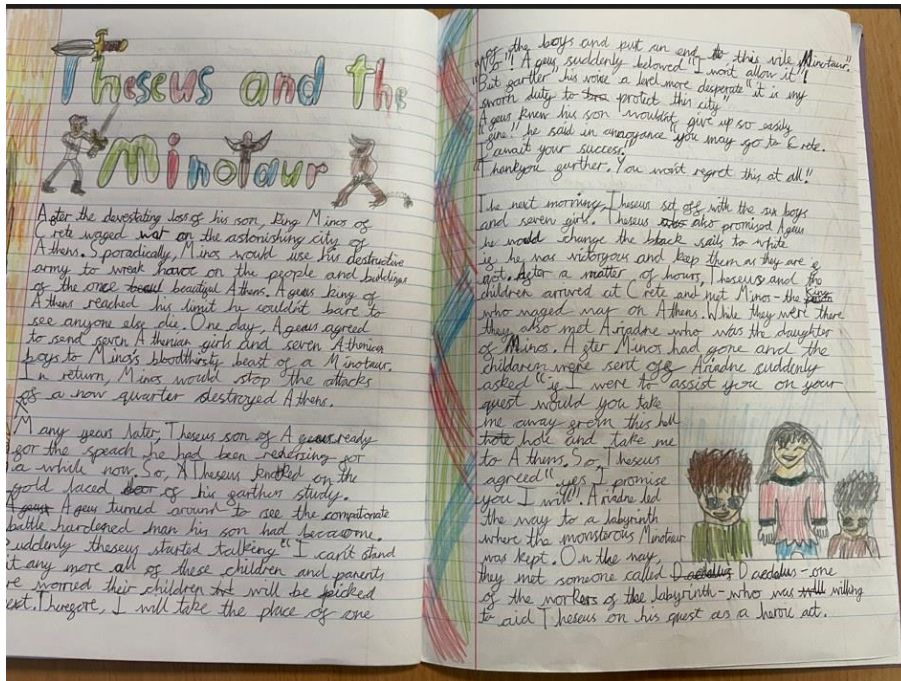 Theseus and the
Minotaur
After the devestating loss of his son, king Minos of
Crete waged wat on the astonishing city of
Athens. Sporadically, Minos would use his destructive
army to wreak havoc on the people and buildings
of the once beautiful Athens. Ageus king of
Athens reached his limit he couldn't bare to
see anyone else die. One day, Ageus agreed
to send seven Athenian girls and seven Athenian
boys to Minos's bloodthirsty beast of a Minotaur.
In return, Minos would stop the attacks
of a now quarter destroyed Athens.
Many years later, Theseus son of Ageus ready
for the speach he had been rehersing for
a while now. So, Theseus knocked on the
gold laced door of his farthers study.
Ageus turned around to see the
battle hardened man his son had became.
Suddenly theseus started talking "I can't stand
it any more all of these children and parents
are worried their children will be picked
next. Therefore, I will take the place of one
of the boys and put an end to this vile Minotaur."
"No"! Ageus suddenly belowed "I won't allow it"!
"But farther" his voice a level more desperate "it is my
sworn duty to protect this city"
Ageus knew his son wouldn't give up so easily
"fine!" he said in annoyance "you may go to Crete.
I await your success."
"Thankyou farther. You won't regret this at all!"
The next morning, Theseus set off with the six boys
and seven girls. Theseus also promised Ageus
he would change the black sails to white
if he was victoryous and keep them as they are if
not. After a matter of hours, Theseus and the
children arrived at Crete and met Minos - the King
who waged war on Athens. While they were there
they also met Ariadne who was the daughter
of Minos. After Minos had gone and the
children were sent off Ariadne suddenly
asked "if I were to assist you on your
quest would you take
me away from this hell
hole and take me
to Athens. So, Theseus
agreed "yes I promise
you I will". Ariadne led
the way to a labyrinth
where the monsterous Minotaur
was kept. On the way,
they met someone called Daedalus - one
of the workers of the labyrinth - who was willing
to aid Theseus on his quest as a heroic act.